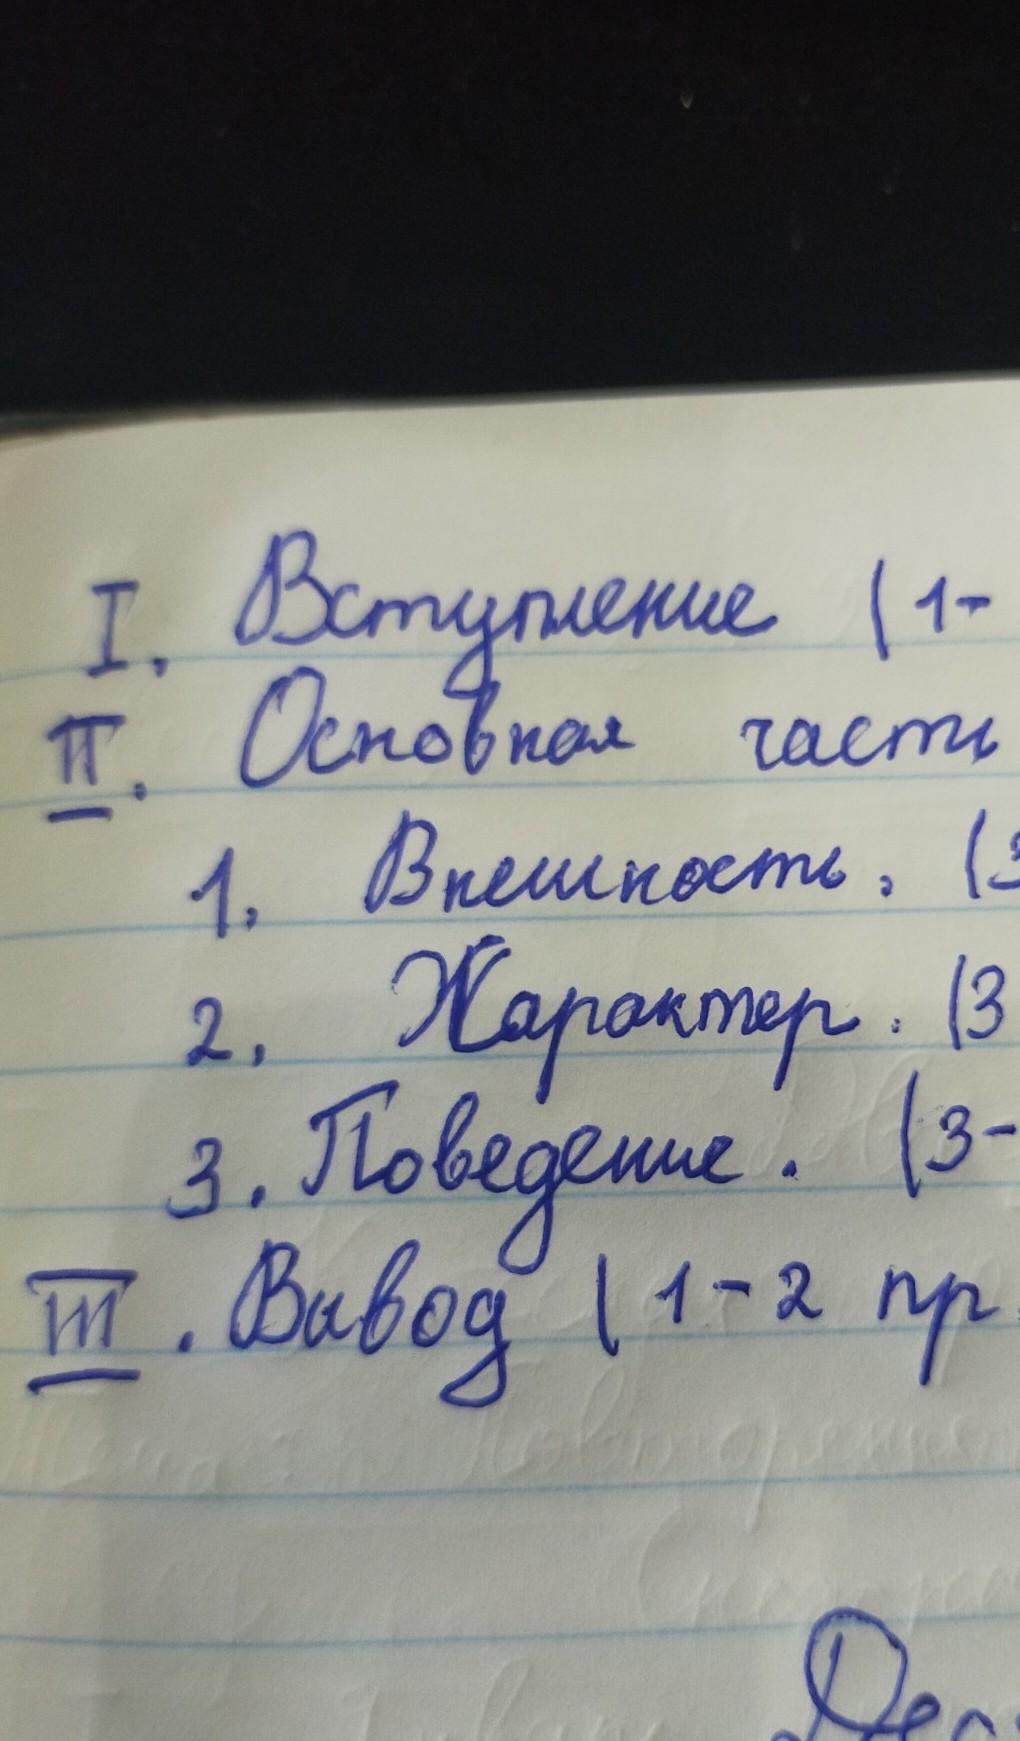 I. Вступление (1-
II. Основная часть
1. Внешность. (3
2. Характер. (3
3. Поведение. (3-
III. Вывод (1-2 пр.